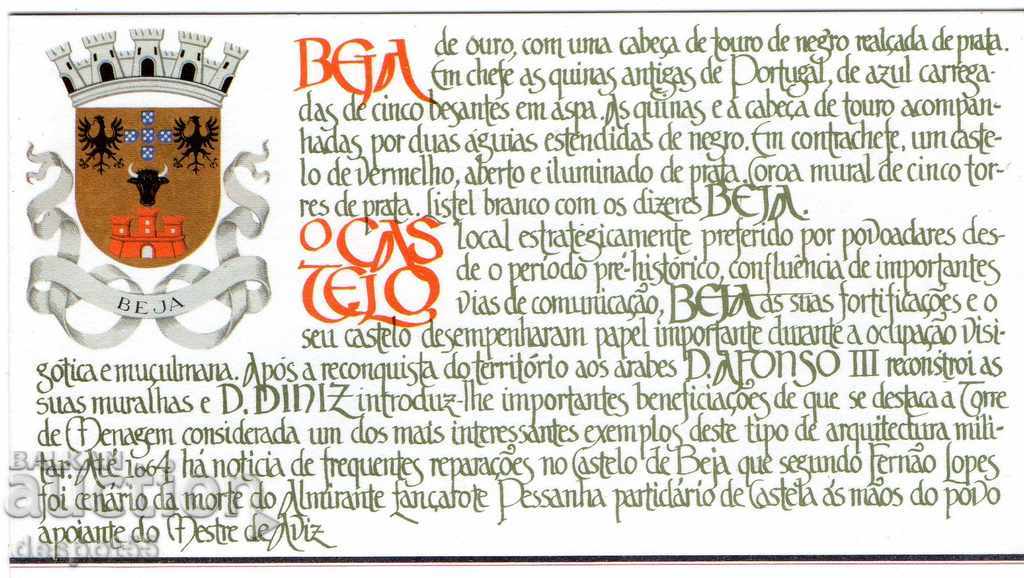 BEJA de ouro, com uma cabeça de touro de negro realçada de prata.
Em chefe as quinas antigas de Portugal, de azul carrega-
das de cinco besantes em aspa. As quinas e a cabeça de touro acompan-
hadas por duas águias estendidas de negro. Em contrachefe, um caste-
lo de vermelho, aberto e iluminado de prata. Coroa mural de cinco tor-
res de prata. Listel branco com os dizeres BEJA.
O CASTELO local estratégicamente preferido por povoadares des-
de o período pré-histórico, confluência de importantes
vias de comunicação, BEJA as suas fortificações e o
seu castelo desempenharam papel importante durante a ocupação visi-
gótica e muçulmana. Após a reconquista do território aos árabes D. AFONSO III reconstroi as
suas muralhas e D. DINIZ introduz-lhe importantes beneficiações de que se destaca a Torre
de Menagem considerada um dos mais interessantes exemplos deste tipo de arquitectura mili-
tar. Até 1664 há noticia de frequentes reparações no Castelo de Beja que segundo Fernão Lopes
foi cenário da morte do Almirante Lançarote Pessanha particlário de Castela ás mãos do povo
apoiante do Mestre de Aviz
BEJA
BALKAN
auction
daspot88